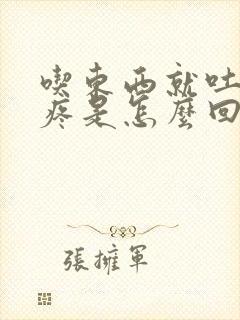 喫東西就吐
疼是怎麼回
張擁軍